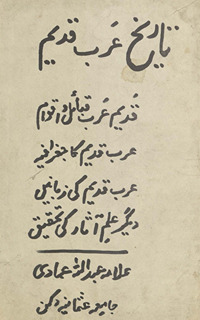 تاریخ عرب قدیم
قدیم عرب قبائل و اقوام
عرب قدیم کا جغرافیہ
عرب قدیم کی زبانیں
دیگر علم آثار کی تحقیق
علامہ عبداللہ عمادی
جامعہ عثمانیہ دکن